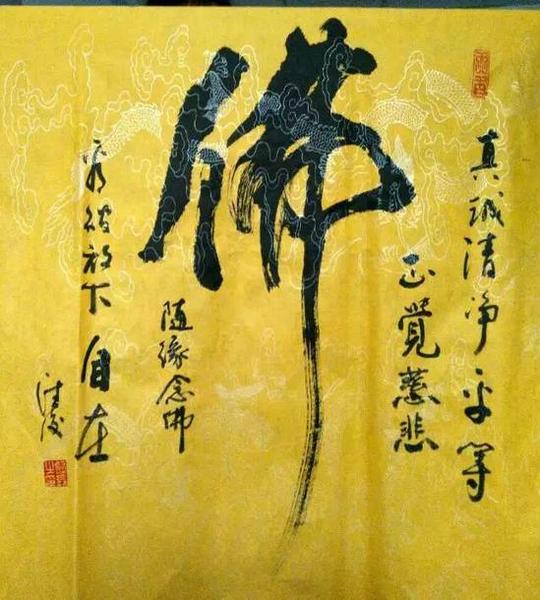 真诚清净平等
正覺慈悲
佛
随缘念佛
看破放下自在